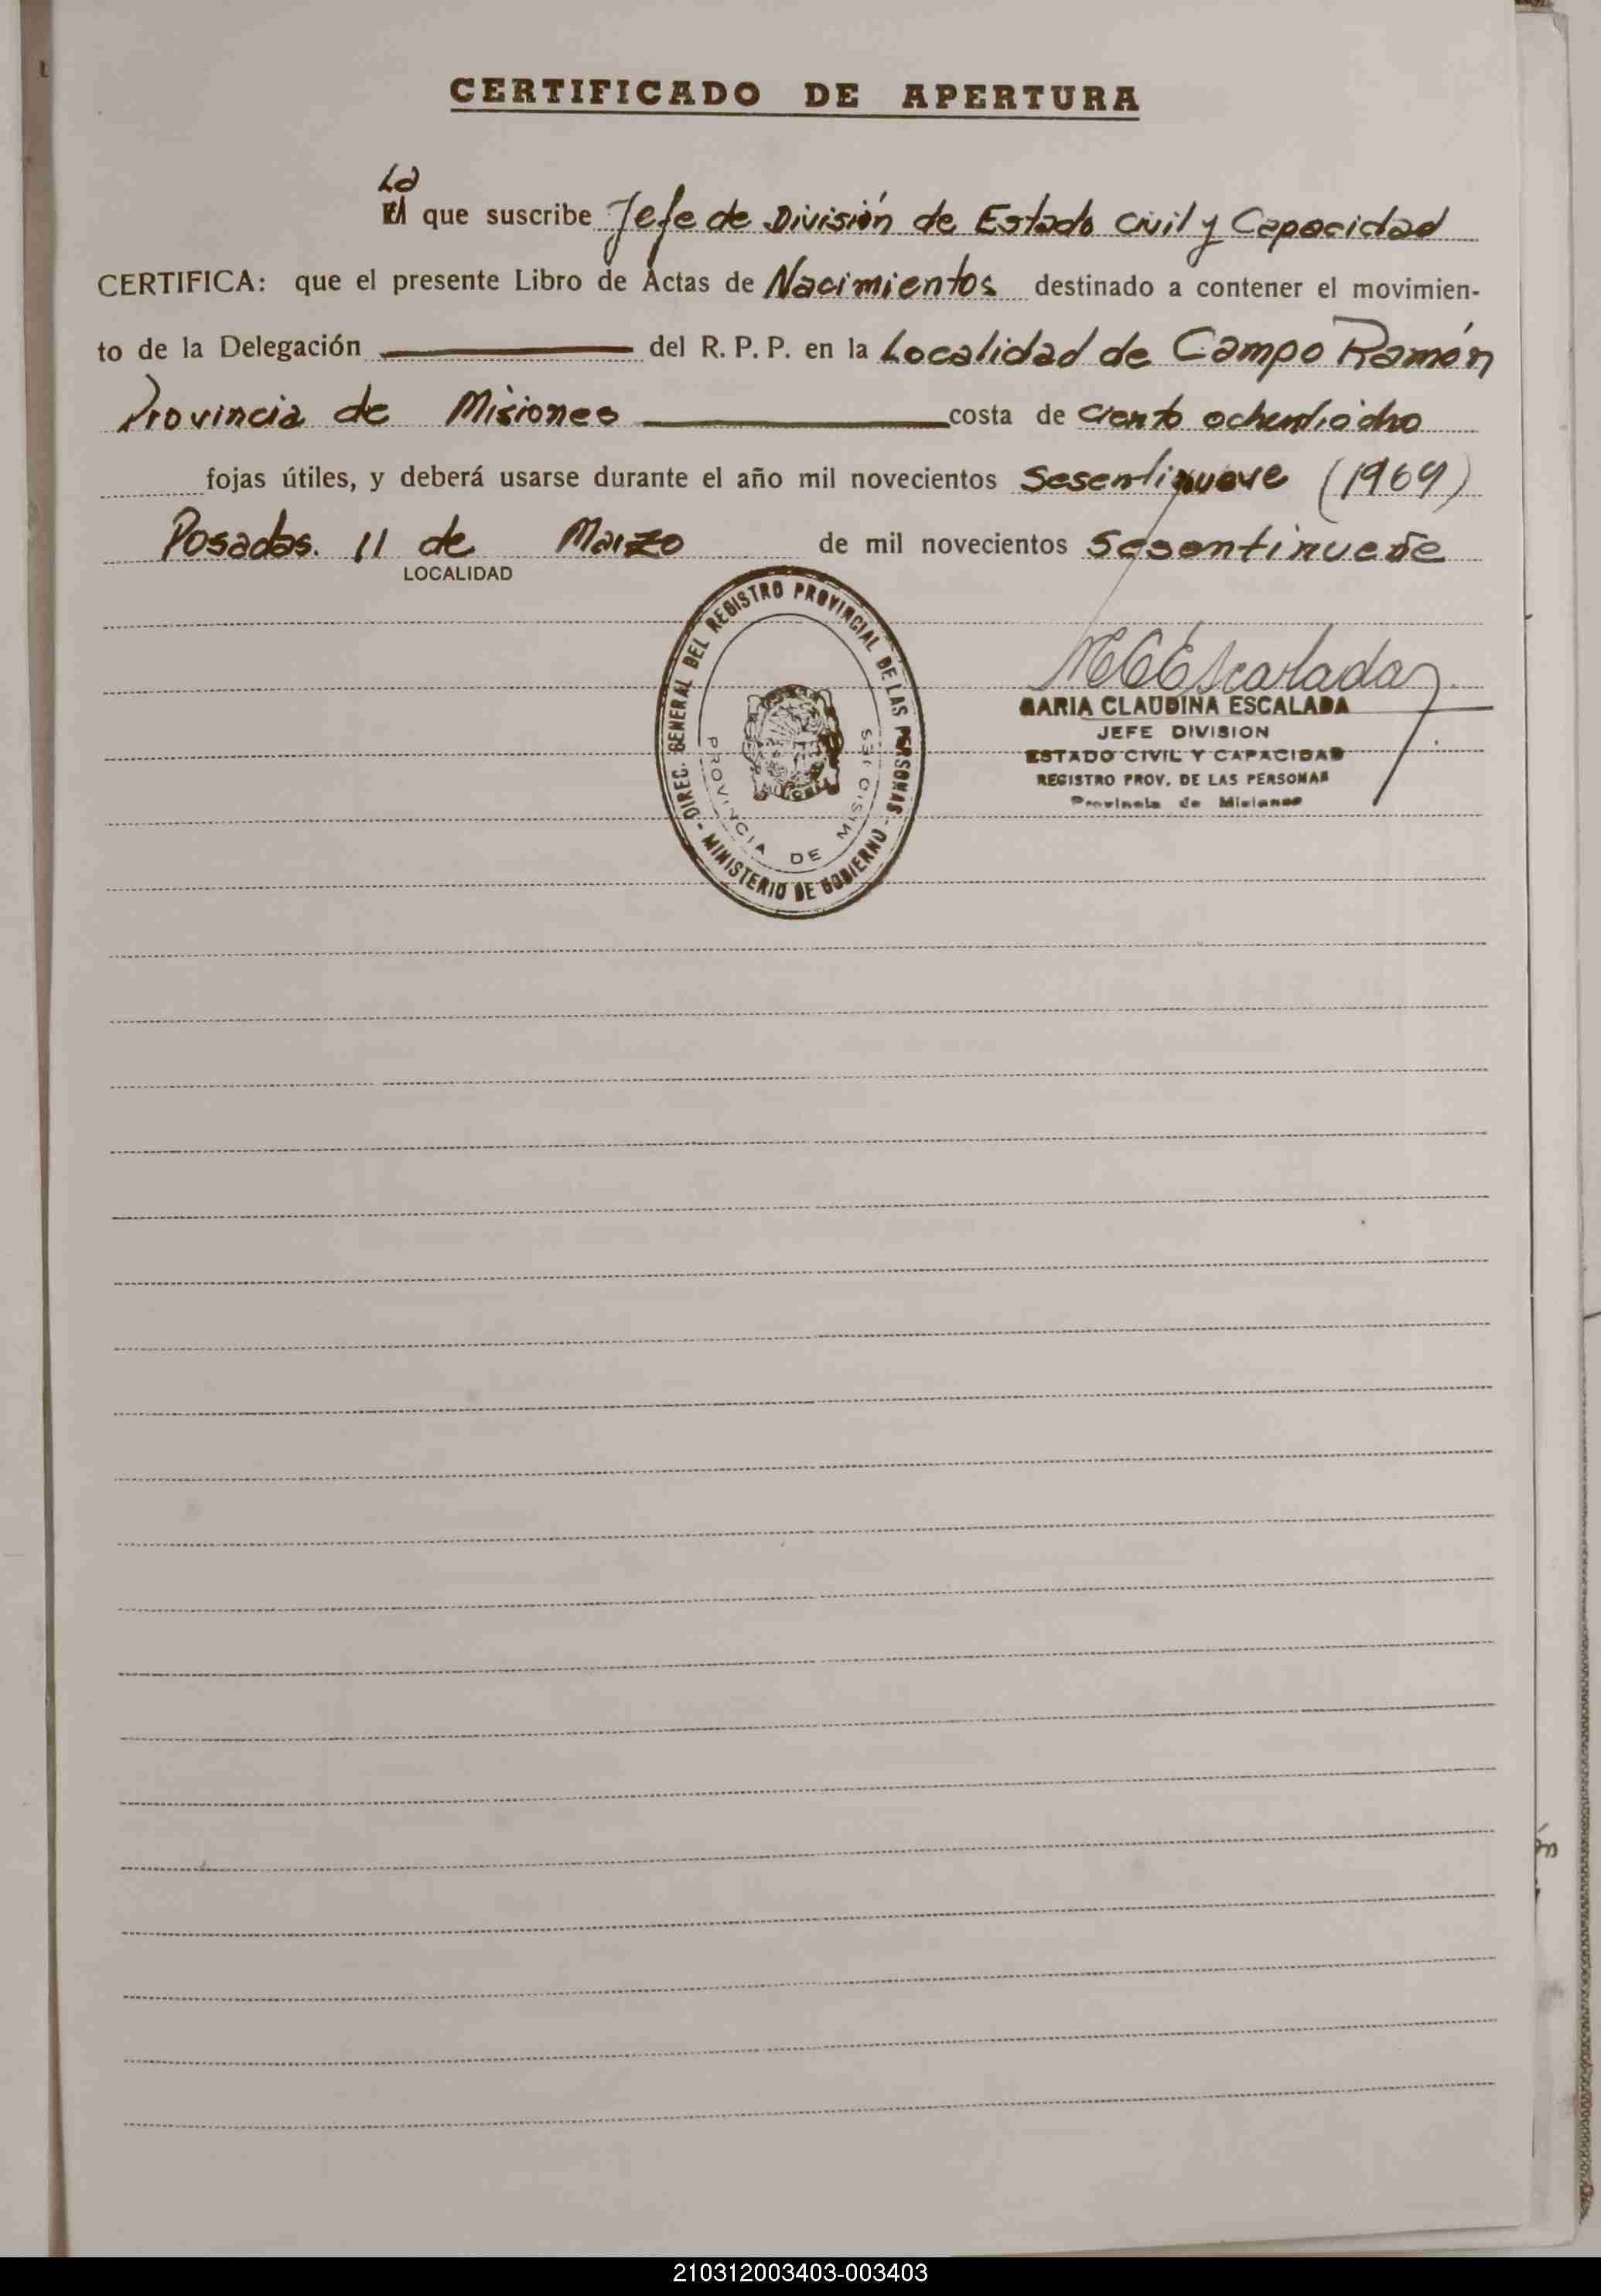 CERTIFICADO DE APERTURA
La
El que suscribe Jefe de División de Estado Civil y Capacidad
CERTIFICA: que el presente Libro de Actas de Nacimientos destinado a contener el movimien-
to de la Delegación del R. P. P. en la Localidad de Campo Ramón
Provincia de Misiones costa de ciento ochentiocho
fojas útiles, y deberá usarse durante el año mil novecientos sesentinueve (1969)
Posadas. 11 de Marzo de mil novecientos Sesentinueve
LOCALIDAD
DIREC. GENERAL DEL REGISTRO PROVINCIAL DE LAS PERSONAS - MINISTERIO DE GOBIERNO -
PROVINCIA DE MISIONES
MCEscalada
MARIA CLAUDINA ESCALADA
JEFE DIVISION
ESTADO CIVIL Y CAPACIDAD
REGISTRO PROV. DE LAS PERSONAS
Provincia de Misiones
210312003403-003403